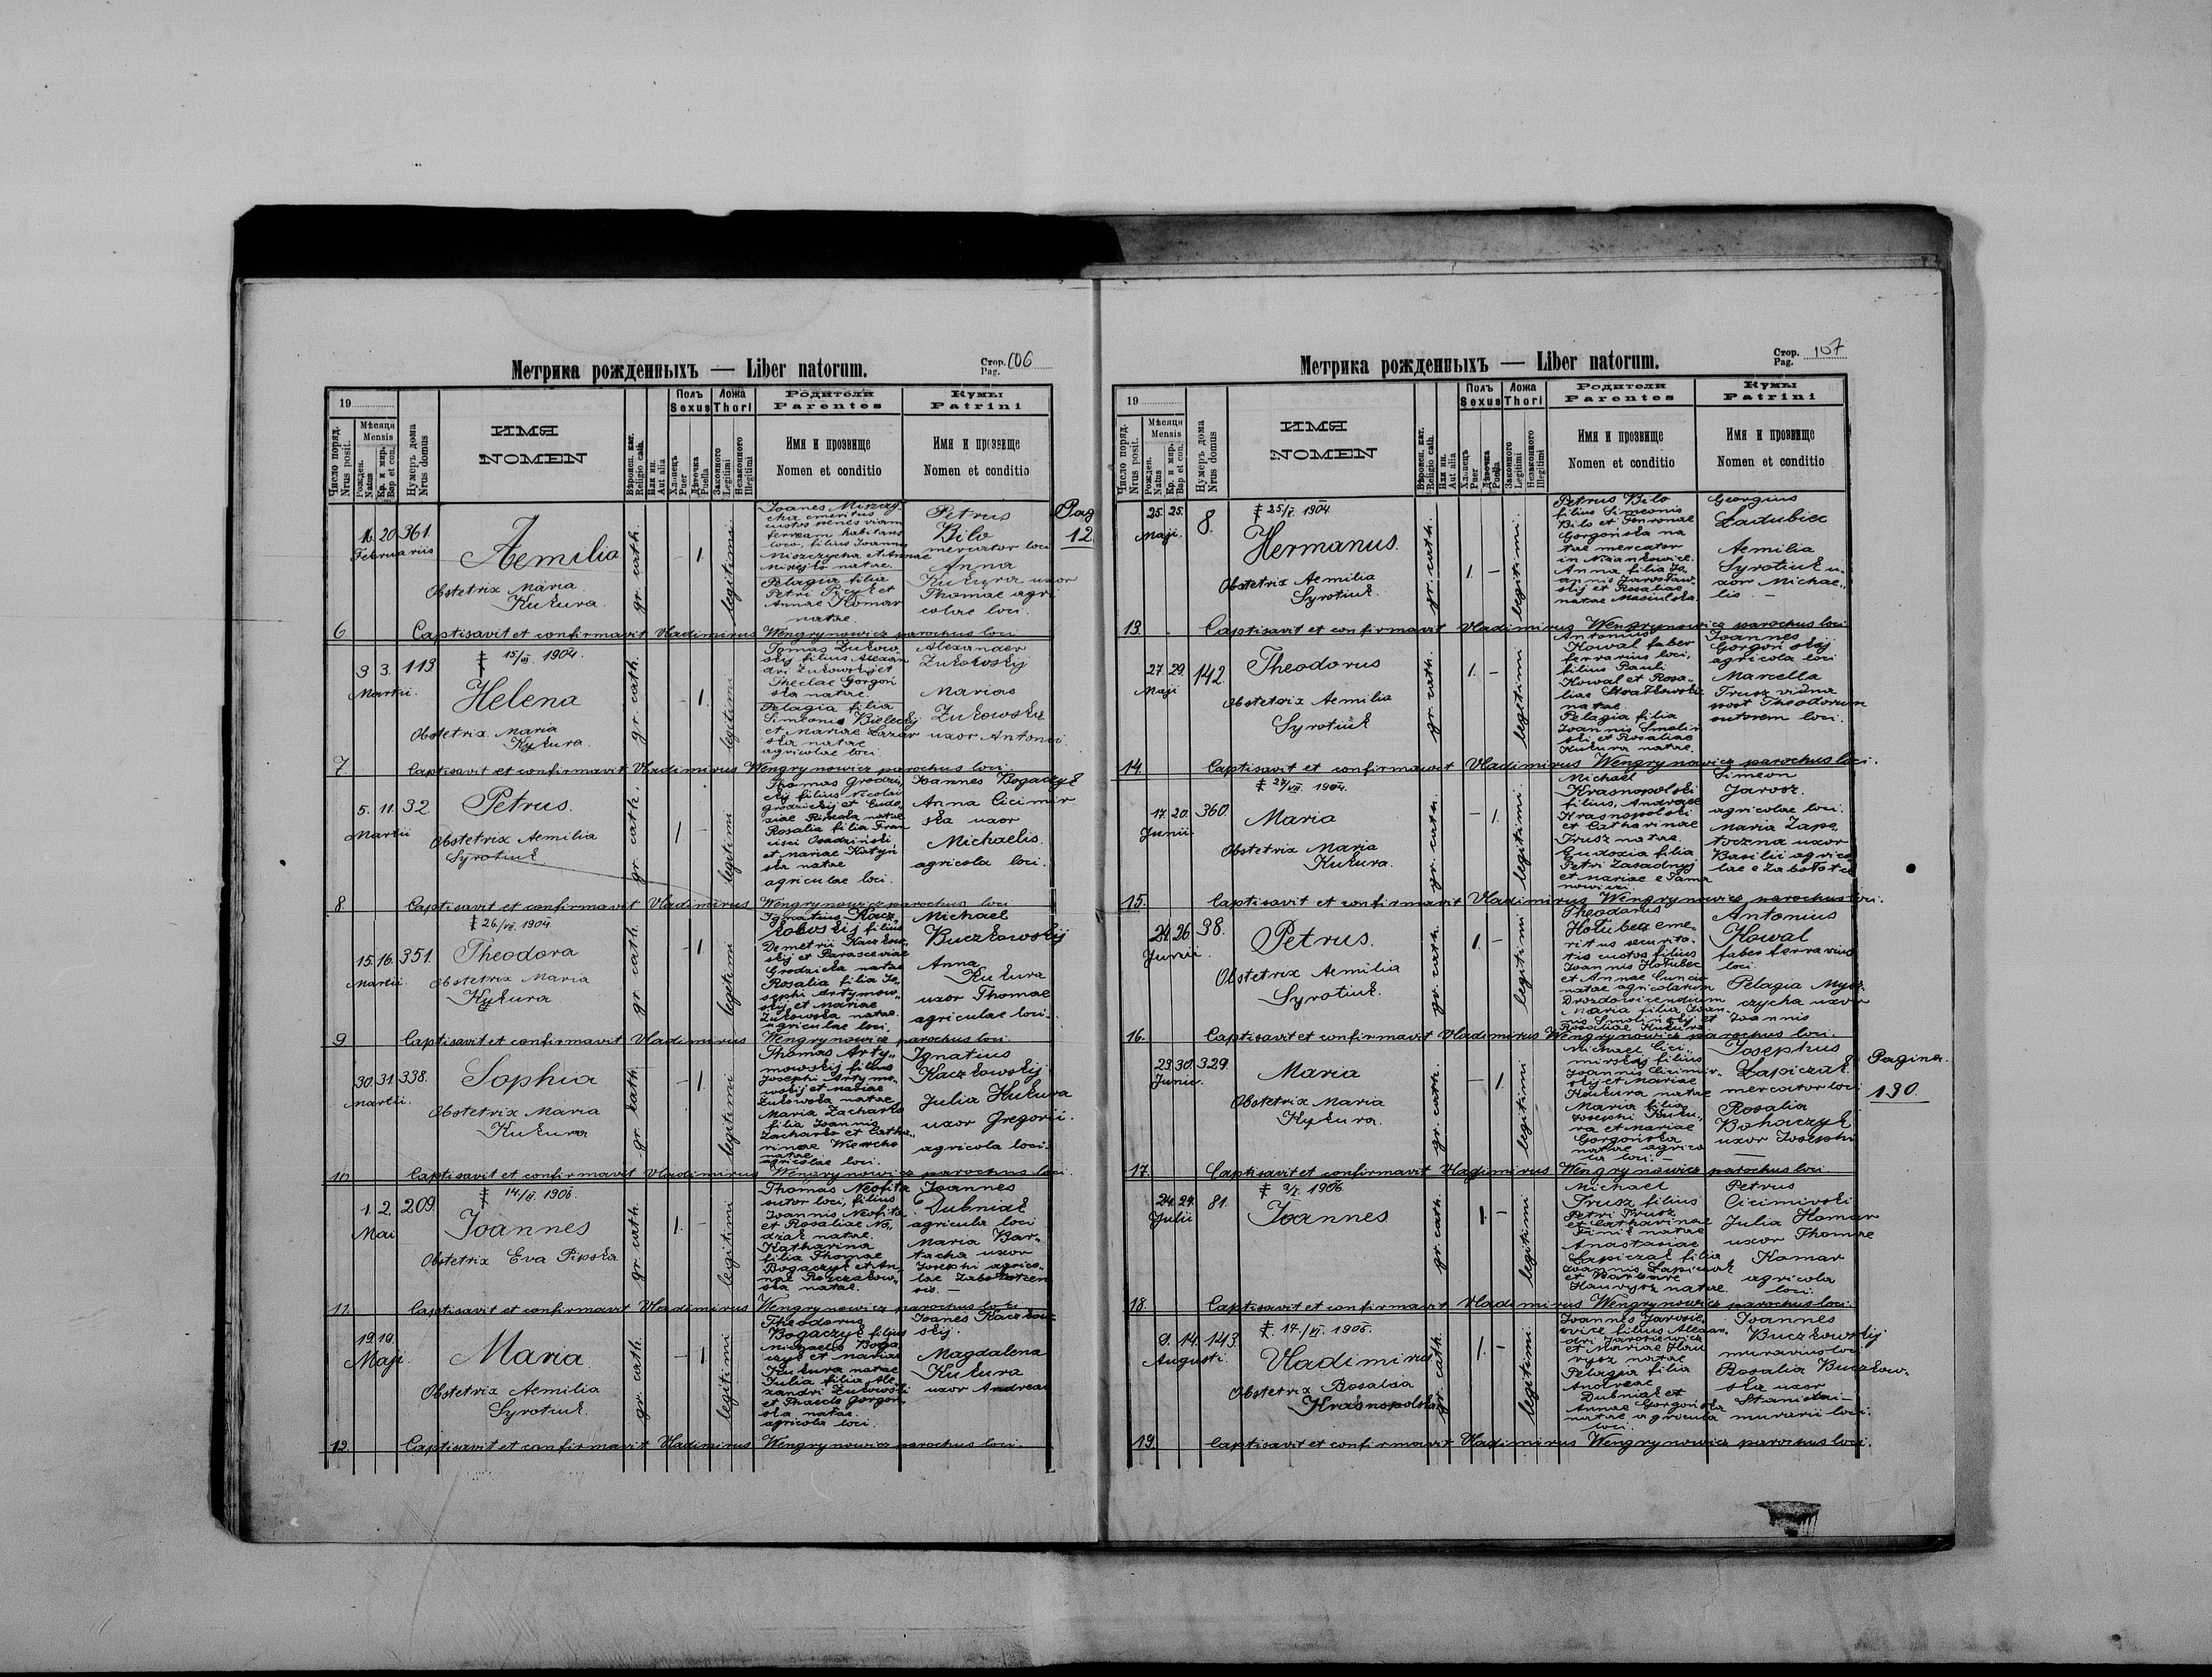 Метрика рожденныхъ — Liber natorum.
Стор. Pag. 106
19
Число поряд. Nrus posit.
Мѣсяця Mensis
Рожден. Natus
Кр. и мир. Bap et con.
Нумеръ дома Nrus domus
ИМЯ
NOMEN
Вѣроисп. кат. Religio cath.
Или ин. Aut alia
Полъ Sexus
Хлопецъ Puer
Дѣвочка Puella
Ложа Thori
Законного Legitimi
Незаконного Illegitimi
Родители
Parentes
Имя и прозвище
Nomen et conditio
Кумы
Patrini
Имя и прозвище
Nomen et conditio
16. 20. 361.
Februariis
Aemilia
Obstetrix Maria
Kukura.
gr. cath.
1.
legitimi
custos penes viam
ferream habitans
loco, filius Joannis
Miszczycha et Annae
natae.
Pelagia filia
Annae Komar
natae.
Petrus
Bilo
mercator loci
Anna
Kukura uxor
Thomae agri
colae loci.
Pag
12.
6. Baptisavit et confirmavit Vladimirus Wengrynowicz parochus loci.
3. 3. 113
Martii.
15/III. 1904.
Helena
Obstetrix Maria
Kykura.
gr. cath.
1.
legitimi
Tomas Zukow
skij filius Alexan
dri Zukowskij et
Theclae Gorgoń
ska natae.
Pelagia filia
Simeonis Bieleckij
et Mariae Lazar
ska natae
agricolae loci
Alexander
Zukowskij
Marias
Zukowska
uxor Antonii.
7. Baptisavit et confirmavit Vladimirus Wengrynowicz parochus loci.
5. 11. 32.
Martii
Petrus.
Obstetrix Aemilia
Syrotiuk
gr. cath.
1. -
legitimi
Thomas Grodzi,
ckij filius Nicolai
Grodzickij et Eudo,
xiae natae
Rosalia filia Fran
cisci Osadziński
et Mariae Katyń
ska natae
agriculae loci.
Joannes Bogaczyk
Anna Cicimir
ska uxor
Michaelis.
agricola loci.
8. Baptisavit et confirmavit Vladimirus Wengrynowicz parochus loci
26./VII. 1904
15. 16. 351.
Martii.
Theodora
Obstetrix Maria
Kykura.
gr. cath.
1.
legitimi
Ignatius Kacz,
kowskij filius
Demetrii Kaczkow,
skij et Parasceviae
Grodzicka natae
Rosalia filia Jo,
sephi Artymow,
skij et Mariae
Zukowska natae.
agriculae loci.
Michael
Buczkowskij
Anna
Kukura
uxor Thomae
agriculae loci.
9. Baptisavit et confirmavit Vladimirus Wengrynowicz parochus loci.
30. 31. 338.
Martii.
Sophia
Obstetrix Maria
Kukura
gr. cath.
1.
legitimi
Thomas Arty,,
mowskij filius
Josephi Artymo,
wskij et Mariae
Zukowska natae
Maria Zacharko
filia Joannis
Zacharko et Catha,,
rinae
natae
agricolae loci.
Ignatius
Kaczkowskij.
Julia Kukura
uxor Gregorii.
agricola loci.
10. Baptisavit et confirmavit Vladimirus Wengrynowicz parochus loci.
14./II. 1906.
1. 2. 209.
Mai
Joannes
Obstetrix Eva Pipska
gr. cath.
1. -
legitimi
Thomas Neofita
sutor loci, filius
Joannis Neofita
et Rosaliae No,,
natae.
Katharina
filia Thomae
Bogaczyk et An,
nae
ska natae.
Joannes
Dubniak
agricula loci
Maria Bar,,
tacha uxor
Josephi agrico,,
lae
sis.
11. Baptisavit et confirmavit Vladimirus Wengrynowicz parochus loci
19. 19.
Maji
Maria.
Obstetrix Aemilia
Syrotiuk.
gr. cath.
1.
legitimi
Theodorus
Bogaczyk filius
Michaelis Boga
czyk et Mariae
Kukura natae
Julia filia Ale,
xandri Zukowski
et Gorgoń,
ska natae.
agricola loci.
Joanes Kaczkow,
skij.
Magdalena
Kukura
uxor Andreae
12. Baptisavit et confirmavit Vladimirus Wengrynowicz parochus loci.
Метрика рожденныхъ — Liber natorum.
Стор. Pag. 107
19
Число поряд. Nrus posit.
Мѣсяця Mensis
Рожден. Natus
Кр. и мир. Bap et con.
Нумеръ дома Nrus domus
ИМЯ
NOMEN
Вѣроисп. кат. Religio cath.
Или ин. Aut alia
Полъ Sexus
Хлопецъ Puer
Дѣвочка Puella
Ложа Thori
Законного Legitimi
Незаконного Illegitimi
Родители
Parentes
Имя и прозвище
Nomen et conditio
Кумы
Patrini
Имя и прозвище
Nomen et conditio
25. 25. 8.
Maji.
25/V. 1904
Hermanus.
Obstetrix Aemilia
Syrotiuk.
gr. cath.
1. -
legitimi.
Petrus Bilo
filius Simeonis
Bilo et
Gorgońska na
tae mercator
in
Anna filia Jo,
annis Jarosław,
skij et Rosaliae
natae
Georgius
Ladubiec
Aemilia
Syrotiuk u,,
xor Michae,,
lis. -
13. Baptisavit et confirmavit Vladimirus Wengrynowicz parochus loci
27. 29. 142.
Maji
Theodorus
Obstetrix Aemilia
Syrotiuk
gr. cath.
1. -
legitimi
Antonius
Kowal faber
ferrarius loci,
filius Pauli
Kowal et Rosa,,
lias
natae.
Pelagia filia
Joannis Smolin
ski et Rosaliae
Kukura natae.
Joannes
Gorgoń skij
agricola loci
Marcella
Trusz vidua
post Theodorum
sutorem loci.
14. Baptisavit et confirmavit Vladimirus Wengrynowicz parochus loci.
27/VII. 1904.
17. 20. 360.
Junii.
Maria
Obstetrix Maria
Kukura.
gr. cath.
- 1.
legitimi.
Michael
Krasnopolski
filius Andreae
Krasnopolski
et Catharinae
Trusz natae.
Eudoxia filia
Petri Zasadnyj
et Mariae
Simeon
Jarosz.
agricolae loci.
Maria Zape,
toczna uxor
Basilii agrico,
lae e
15. Baptisavit et confirmavit Vladimirus Wengrynowicz parochus loci.
24. 26. 38.
Junii.
Petrus.
Obstetrix Aemilia
Syrotiuk.
gr. cath.
1. -
legitimi
Theodorus
Hołubec eme,
ritus securita,
tis custos filius
Joannis Hołubec
et Annae
natae agricolarum
Maria filia Joan,
nis Smolińskij et
Rosaliae Kukura
Antonius
Kowal
faber ferrarius
loci.
Pelagia Mysz,
czycha uxor
Joannis
16. Baptisavit et confirmavit Vladimirus Wengrynowicz parochus loci.
23. 30. 329.
Junii.
Maria
Obstetrix Maria
Kykura.
gr. cath.
- 1.
legitimi
Michael Cici,
mirskij filius
Joannis Cicimir,
skij et Mariae
Kukura natae
Maria filia
Josephi Kuku,,
ra et Mariae
Gorgońska
natae agrico
la loci. -
Josephus
Łapiczak
mercator loci
Rosalia
Bohaczyk
uxor Josephi
Pagina.
130.
17. Baptisavit et confirmavit Vladimirus Wengrynowicz parochus loci
3/I. 1906.
24. 24. 81.
Julii
Joannes
gr. cath.
1 -
legitimi
Michael
Trusz filius
Petri Trusz
et Catharinae
natae
Anastasiae
Łapiczak filia
Joannis Łapiczak
et Barbare
natae.
Petrus
Cicimirski
Julia Homar
uxor Thomae
Komar
agricola
loci.
18. Baptisavit et confirmavit Vladimirus Wengrynowicz parochus loci.
9. 14. 143.
Augusti.
Vladimirus
Obstetrix Rosalia
Krasnopolska
gr. cath.
1. -
legitimi.
Joannes Jarosie,
wicz filius Alexan,
dri Jarosiewicz
et Mariae Hau
rysz natae
Pelagia filia
Andreae
Dubniak et
Annae Gorgońska
natae agricula
loci
Joannes
Buczkowskij
murarius loci
Rosalia Buczkow,,
ska uxor
Stanislai
murarii loci.
19. Baptisavit et confirmavit Vladimirus Wengrynowicz parochus loci.